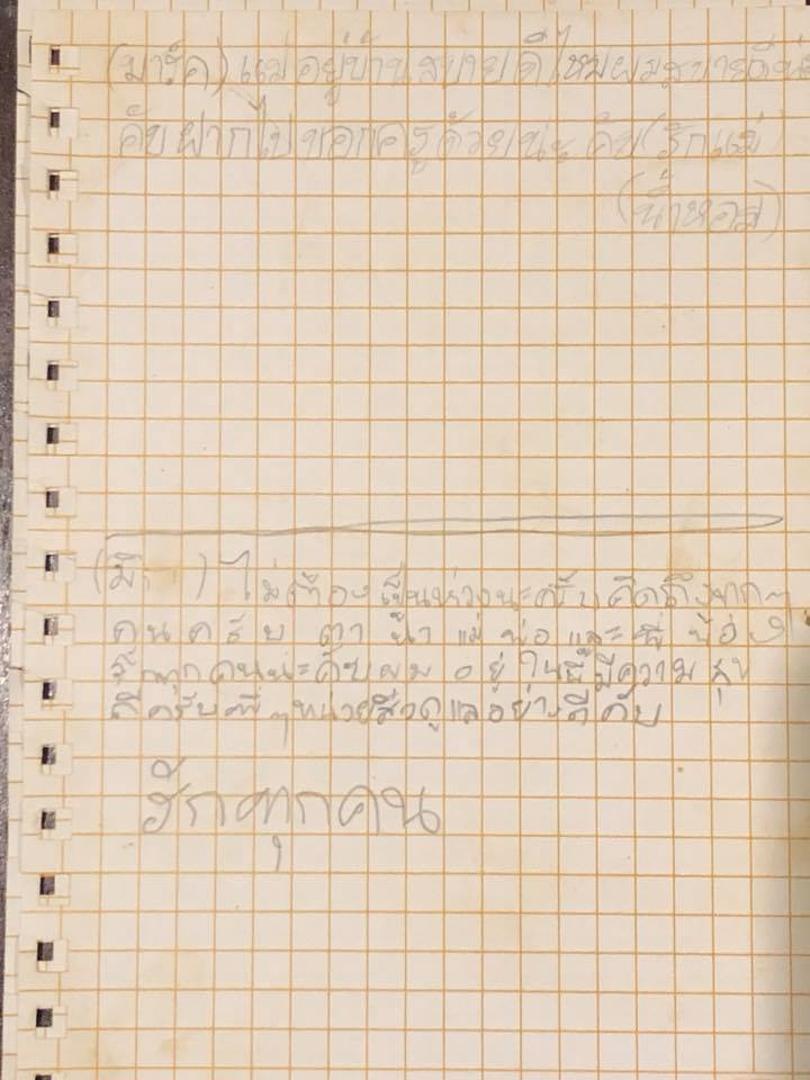 (มาร์ค) แม่อยู่บ้านสบายดีไหมผมสบายดี
คับฝากไปบอกครูด้วยน่ะคับ(รักแม่
(น้ำหอม)
ไม่ต้องเป็นห่วงนะครับคิดถึงทุกๆ
คนครับ ตา น้า แม่ พ่อ และพี่ น้อง
รักทุกคนน่ะคับผมอยู่ในนี้มีความสุข
ดีครับพี่ๆหน่วยซีลดูแลอย่างดีคับ
รักทุกคน